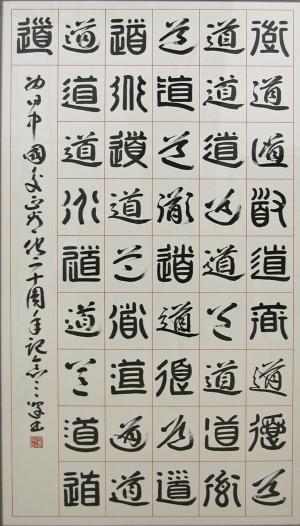 道道道道道道道道道
道道道道道道道道道
道道道道道道道道道
道道道道道道道道道
道道道道道道道道道
道
日中國交正常化二十周年記念